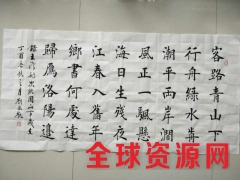 客路青山下
行舟綠水歬
潮平兩岸闊
風正一颿懸
海日生残夜
江春入舊年
鄉書何處達
歸雁洛陽邊
次北固山下
丁酉
全球资源网